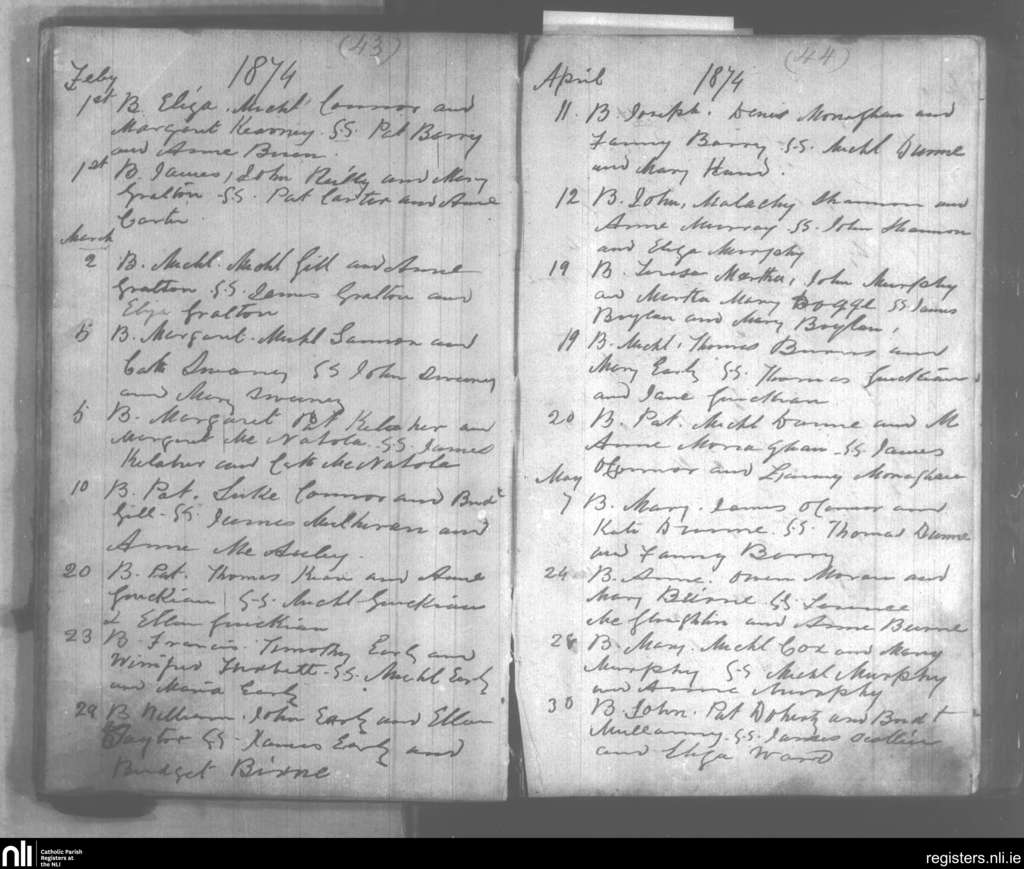 (43)
Feby 1874
1st B. Eliza. Michl Connor and
Margaret Kearney. SS. Pat Barry
and Anne Birn.
1st B. James, John Reilly and Mary
Gralton SS. Pat Carter and Anne
Carter.
March
2 B. Michl. Michl Gill and Anne
Gralton SS. James Gralton and
Eliza Gralton
5 B. Margaret. Michl Gannon and
Cath Sweeney SS John Sweeney
and Mary Sweeney
5 B. Margaret Pat Kelaher and
Margaret Mc Nabola. SS. James
Kelaher and Cath McNabola
10 B. Pat. Luke Connor and Bridt
Gill - SS. James Mulheran and
Anne Mc Auley.
20 B. Pat. Thomas Kean and Anne
Guckian SS. Michl Guckian
& Ellen Guckian
23 B Francis. Timothy Early and
Winifred SS. Michl Early
and Maria Early
29 B William. John Early and Ellen
Taylor SS. James Early and
Bridget Birne
(44)
April 1874
11. B. Joseph. Denis Monaghan and
Fanny Barry. SS. Michl Dunne
and Mary Hand.
12 B. John, Malachy Shannon and
Anne Murray SS. John Shannon
and Eliza Murphy
19 B. Teresa Martha, John Murphy
and Martha Mary SS James
Boylan and Mary Boylan.
19 B. Michl. Thomas Burns and
Mary Early SS. Thomas Guckian
and Jane Guckian
20 B. Pat. Michl Dunne and M
Anne Monaghan - SS James
O'Connor and Fanny Monaghan
May
7 B. Mary. James O'Connor and
Kate Dunne. SS. Thomas Dunne
and Fanny Barry
24 B. Anne. Owen Moran and
Mary Beirne SS. Terence
McGloughlin and Anne Beirne
28 B. Mary. Michl Cox and Mary
Murphy SS Michl Murphy
and Annie Murphy
30 B. John. Pat Doherty and Bridt
Mullanny. SS. James
and Eliza Ward
nli Catholic Parish
Registers at
the NLI
registers.nli.ie